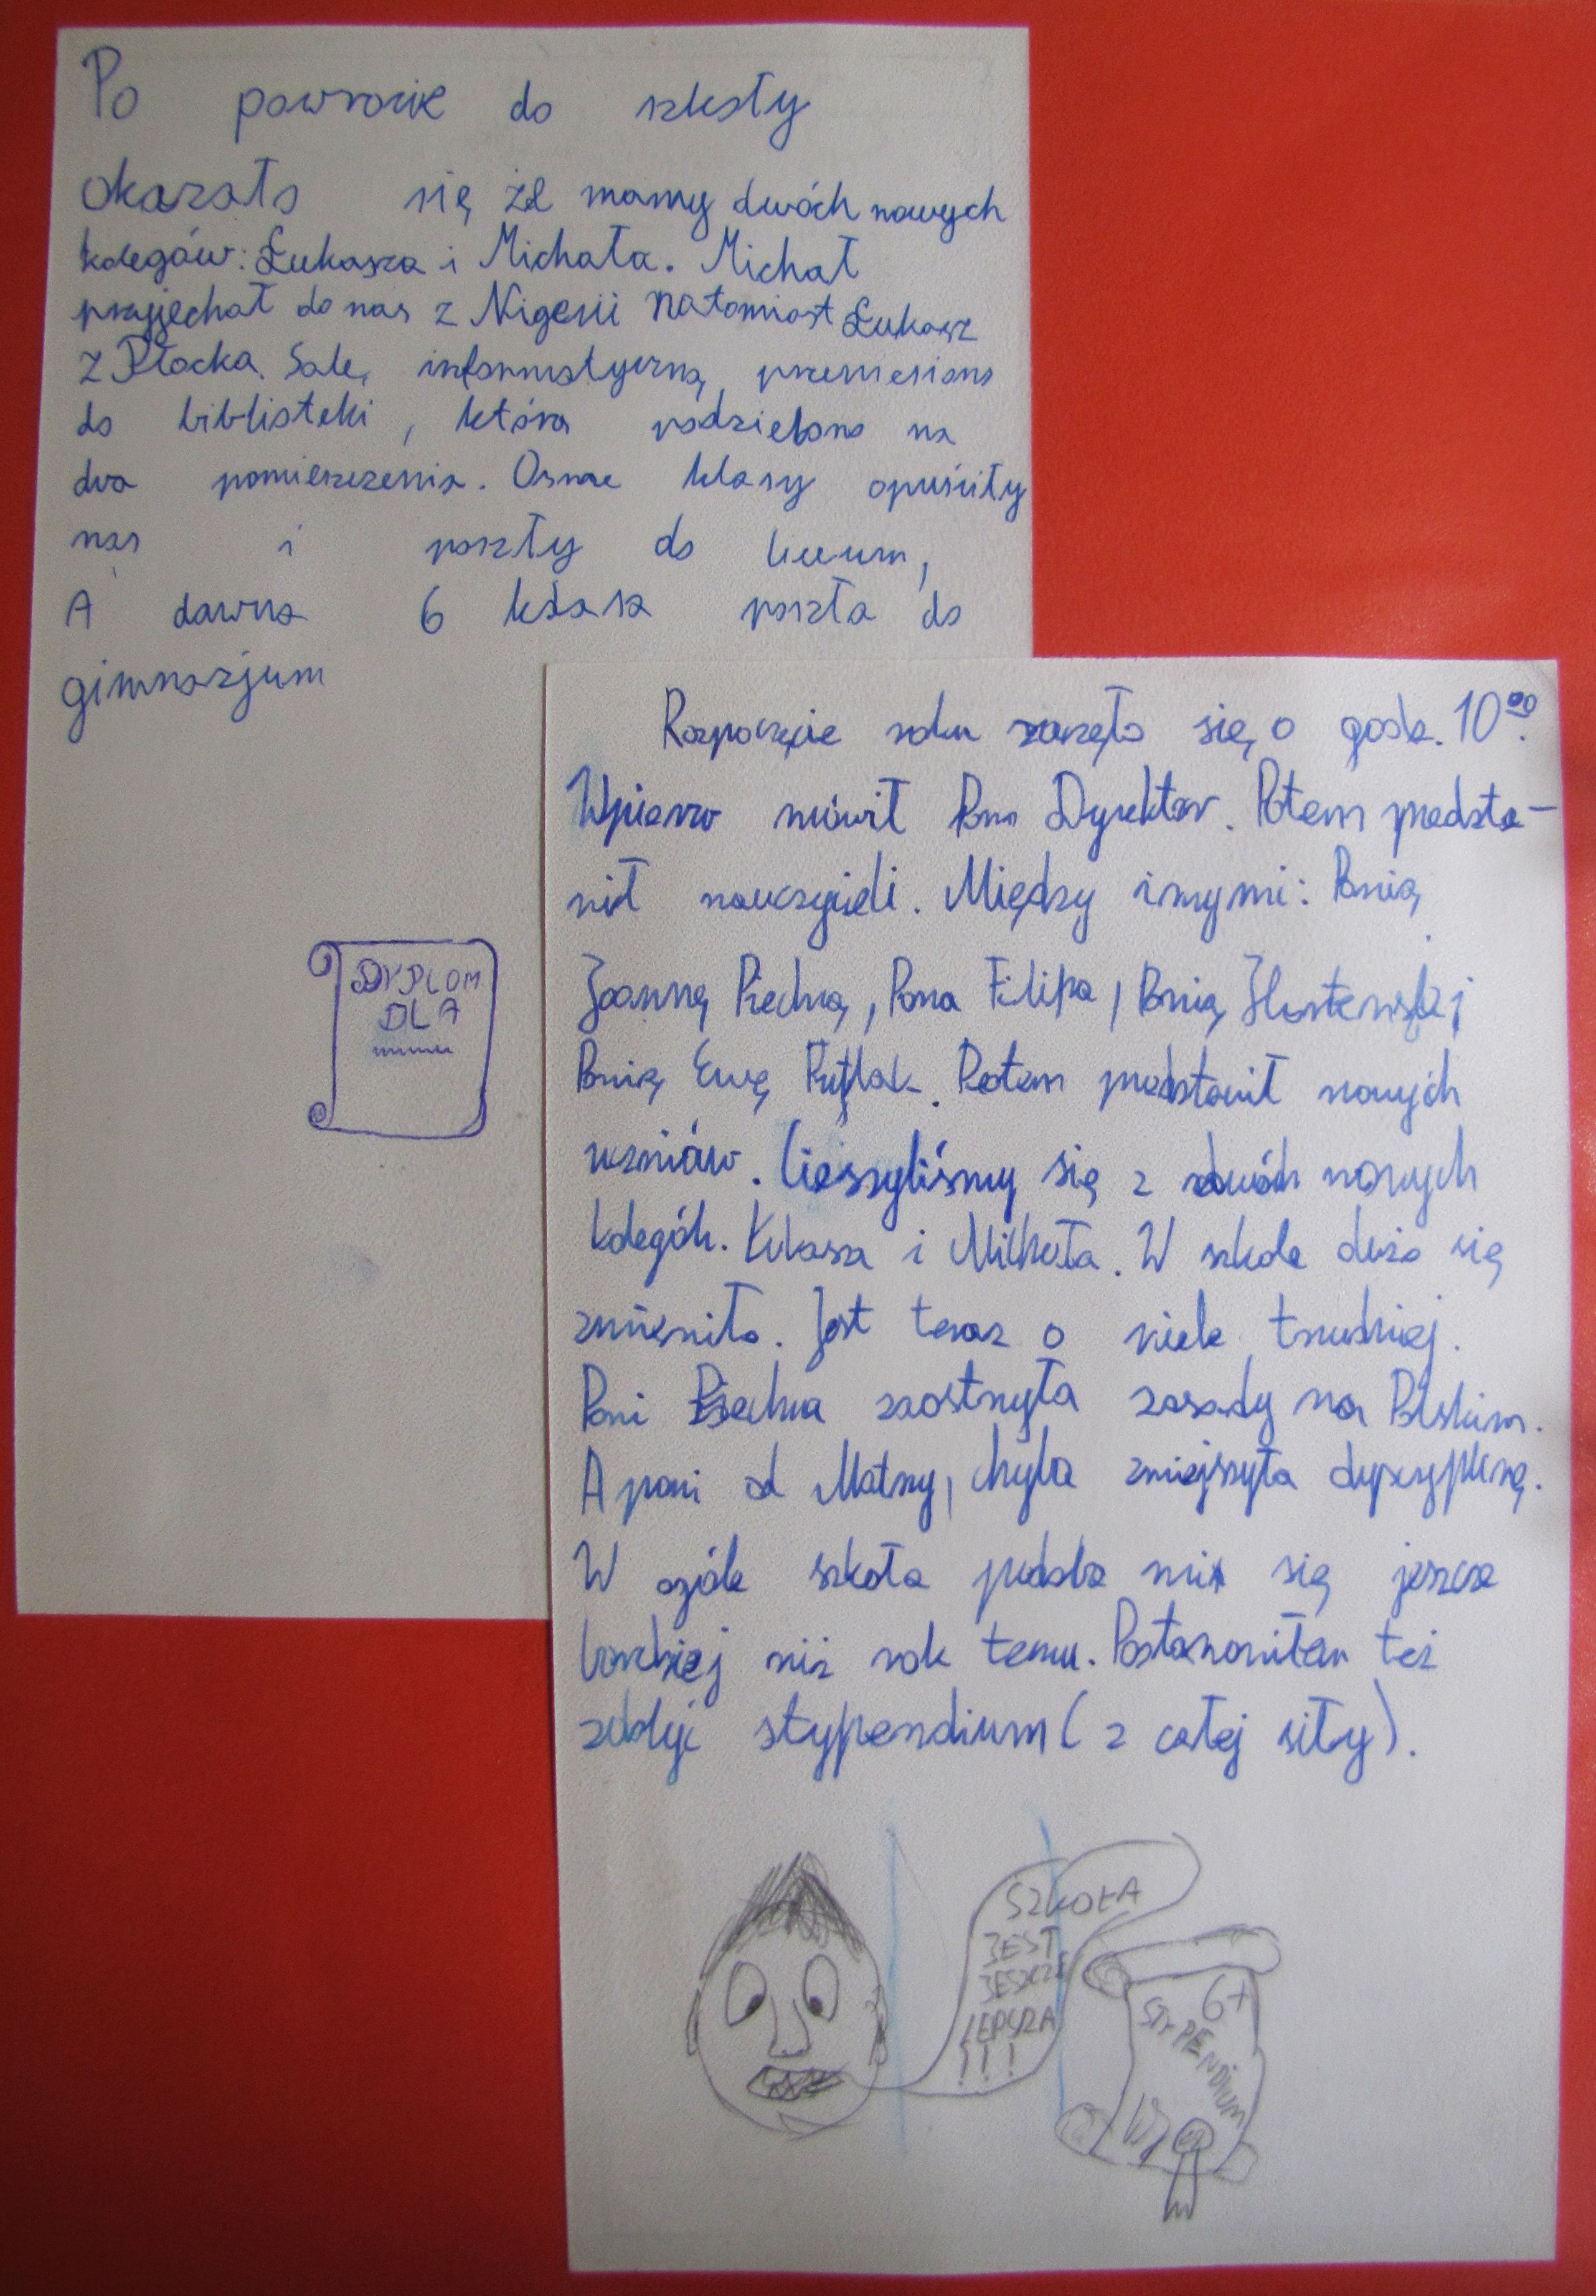 Po powrocie do szkoły
okazało się że mamy dwóch nowych
kolegów: Łukasza i Michała. Michał
przyjechał do nas z Nigerii natomiast Łukasz
z Płocka. Sale, informatyczną przeniesiono
do biblioteki, która podzielono na
dwa pomieszczenia. Osme klasy opuściły
nas i poszły do liceum,
A dawna 6 klasa poszła do
gimnazjum
DYPLOM
DLA
Rozpoczęcie roku zaczęło się o godz. 10⁰⁰.
Wpierw mówił Pan Dyrektor. Potem przedsta-
wił nauczycieli. Między innymi: Panią
Joannę Piechną, Pana Filipa, Panią
Panią Ewę Potem przedstawił nowych
uczniów. Cieszyliśmy się z dwóch nowych
kolegóh. Łukasza i Michała. W szkole dużo się
zmieniło. Jest teraz o wiele trudniej.
Pani Piechna zaostrzyła zasady na Polskim.
A pani od Matmy, chyba zmiejszyła dyscyplinę.
W ogóle szkoła podoba mi się jeszcze
bardziej niż rok temu. Postanowiłem też
zdobyć stypendium (z całej siły).
SZKOŁA
JEST
JESZCZE
LEPSZA
!!!
6+
STYPENDIUM